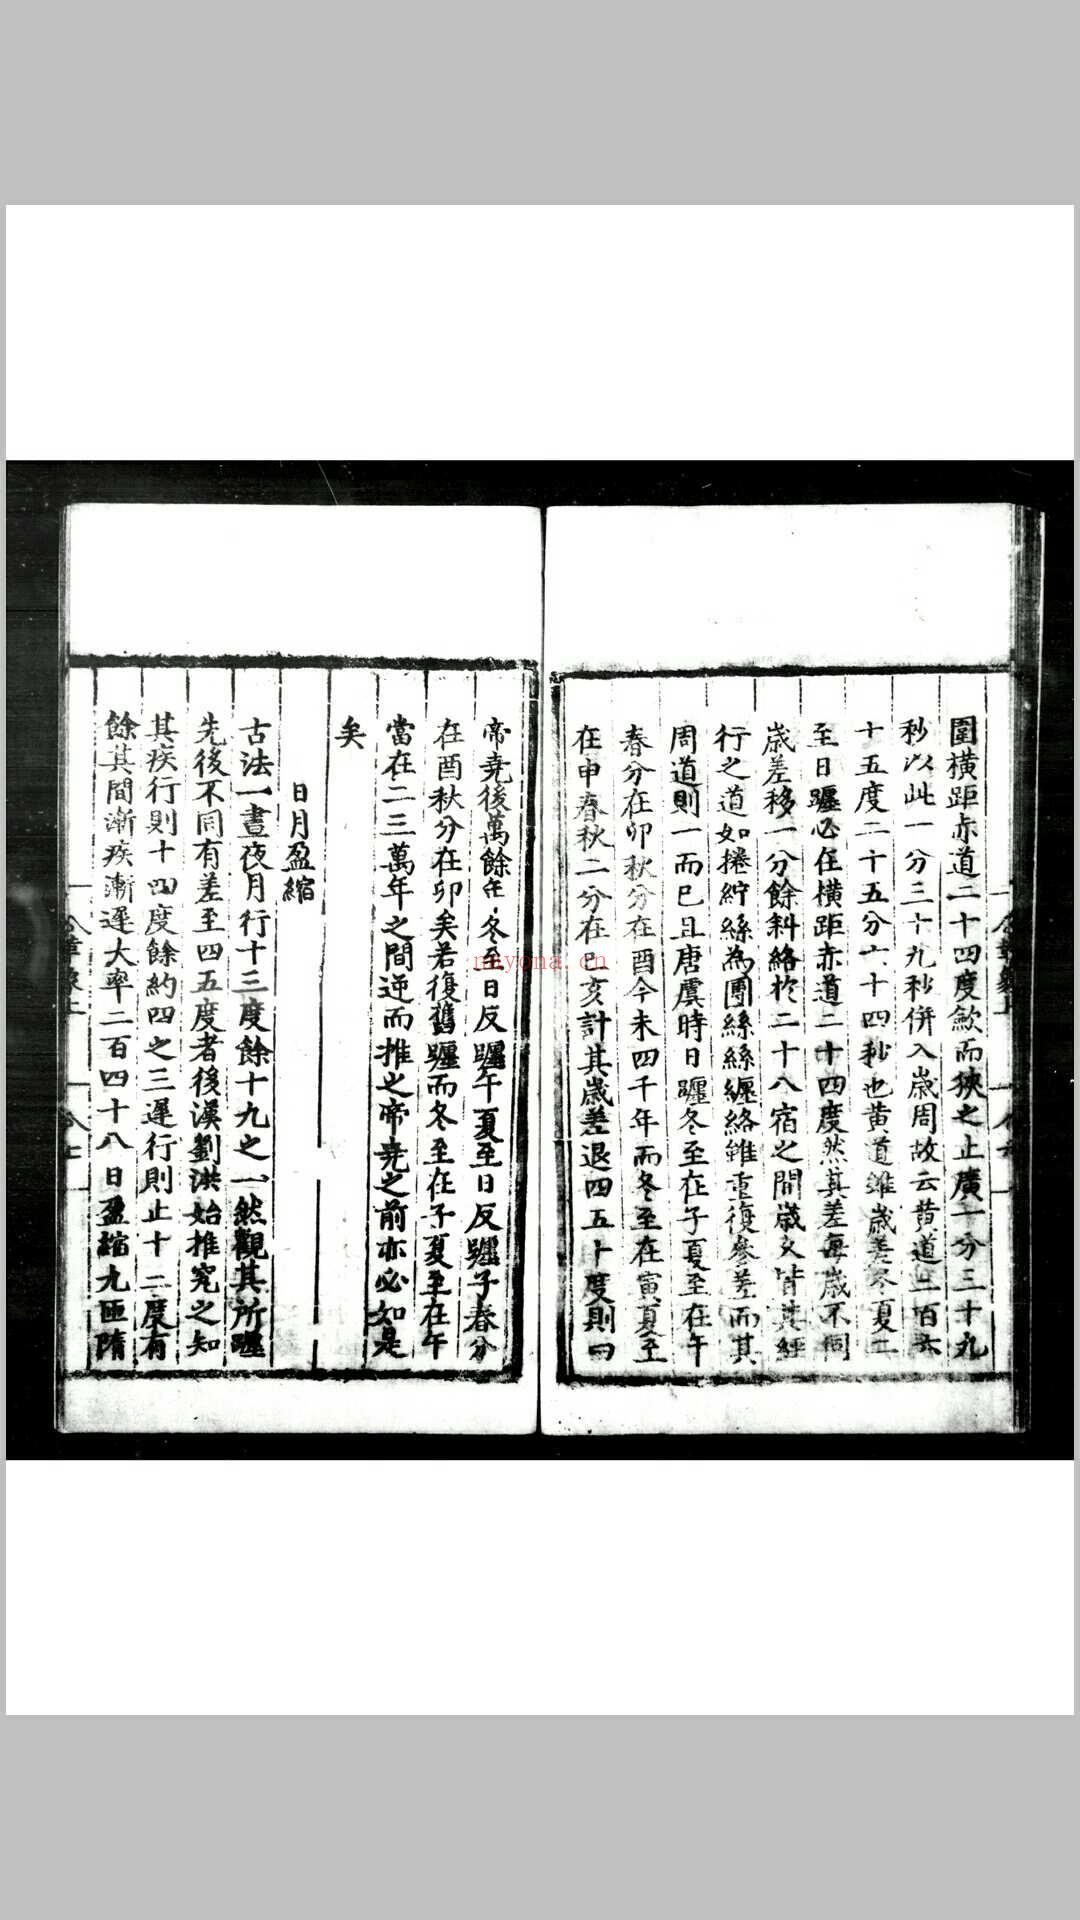 圍横距赤道二十四度歛而狹之止廣一分三十九
秒以此一分三十九秒併入歳周故云黄道三百六
十五度二十五分六十四秒也黄道雖歳差冬夏二
至日躔必在横距赤道二十四度然其差每歳不同
歳差移一分餘斜絡於二十八宿之間歳久皆其經
行之道如捲紵絲為團絲絲纒絡雖重復參差而其
周道則一而已且唐虞時日躔冬至在子夏至在午
春分在卯秋分在酉今未四千年而冬至在寅夏至
在申春秋二分在巳亥計其歳差退四五十度則曰
帝堯後萬餘年冬至日反躔午夏至日反躔子春分
在酉秋分在卯矣若復舊躔而冬至在子夏至在午
當在二三萬年之間逆而推之帝堯之前亦必如是
矣
日月盈縮
古法一晝夜月行十三度餘十九之一然觀其所躔
先後不同有差至四五度者後漢劉洪始推究之知
其疾行則十四度餘約四之三遲行則止十二度有
餘其間漸疾漸遲大率二百四十八日盈縮九匝隋
nayona.cn